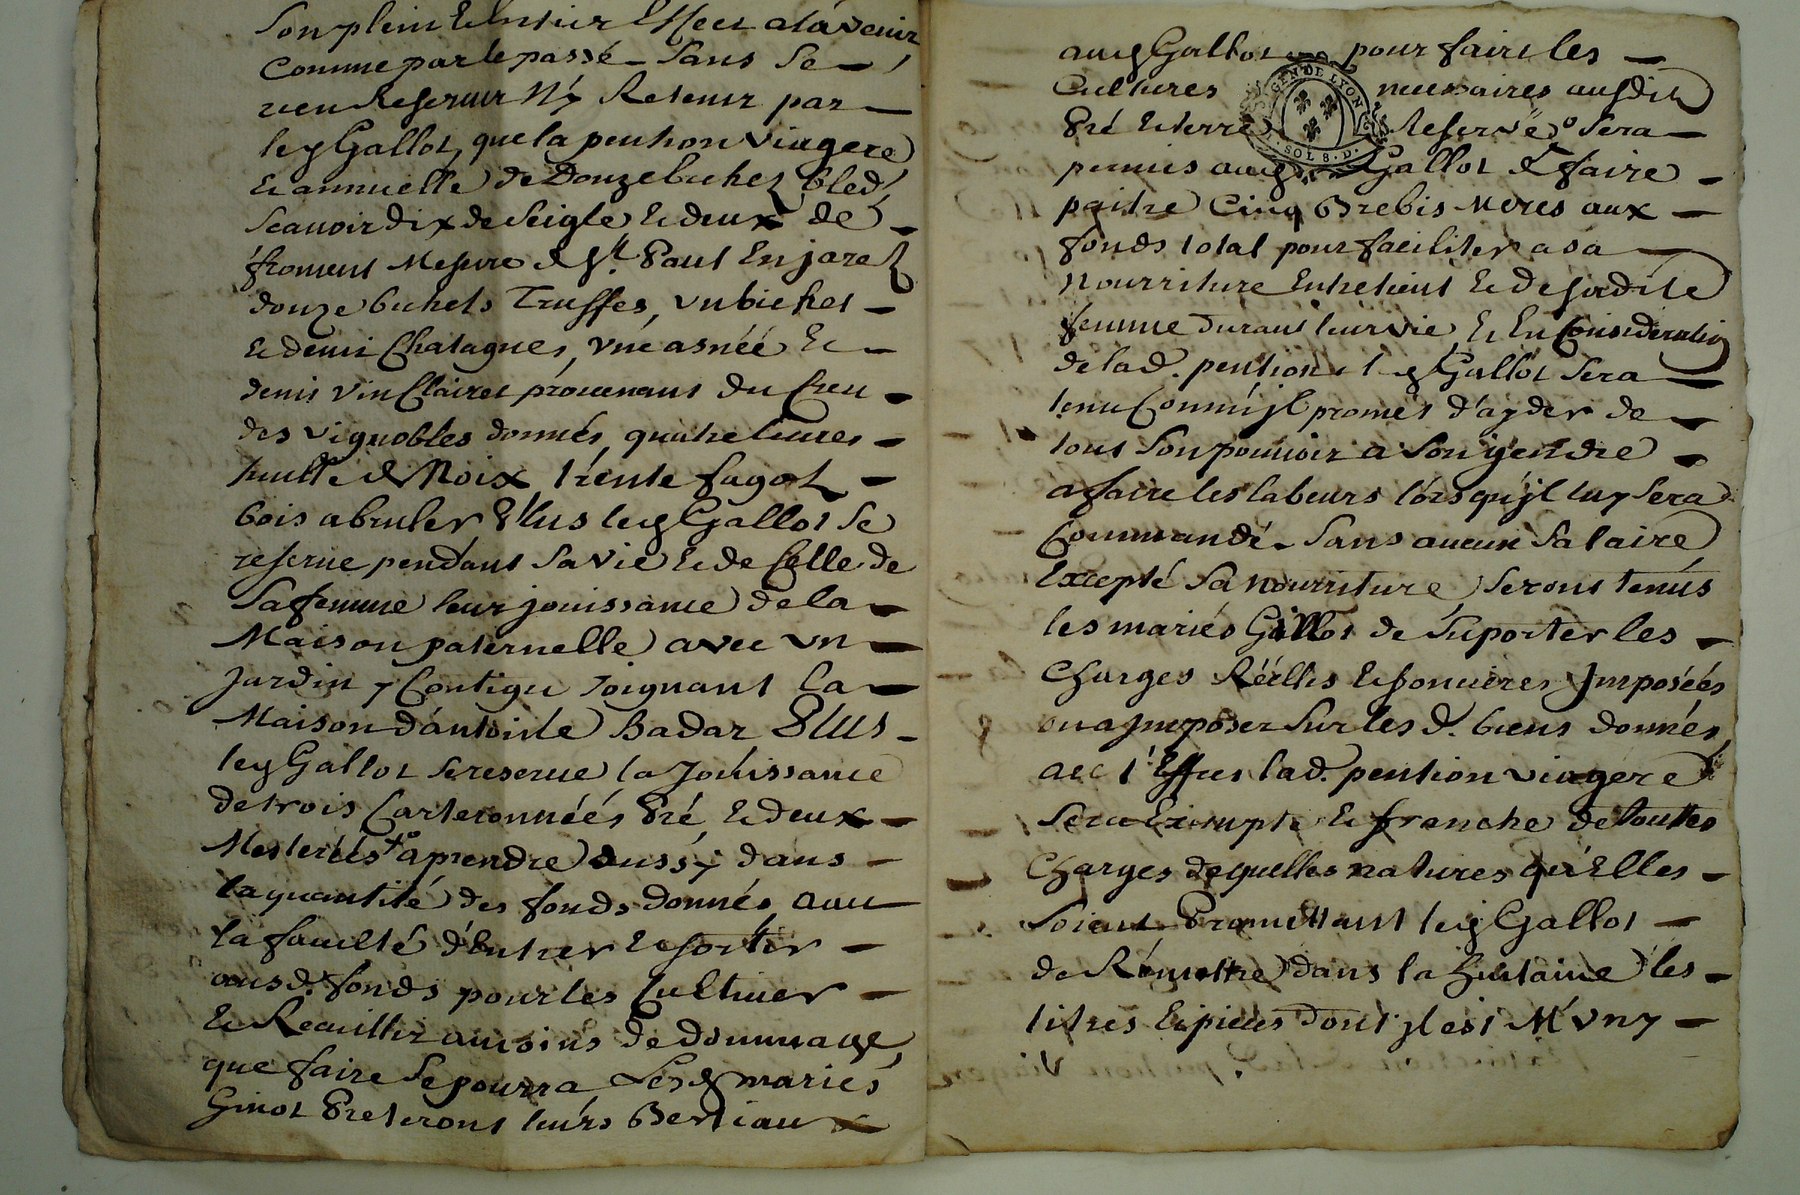 Son plein & entier Effect a lavenir
Comme par le passé Sans Se
rien Reserver Ny Retenir par
led Gallot, que la pention viagere
& annuelle de Douze bichez bled,
Scavoir dix de Seigle & deux de
froment Mesure de St Paul En jarez
douze bichets Truffes, un bichet
& demi Chatagnes, une asnéé &
demi vin Clairet provenant du Creu
des vignobles donnés, quatre livres
huille de Noix trente fagotz
bois a bruler Plus led Gallot Se
reserve pendant Sa vie & de Celle de
Sa femme leur jouissance de la
Maison paternelle avec un
Jardin y Contigu Joignant la
Maison d'antoine Badar Plus
led Gallot Se reserve la Jouissance
de trois Carteronnéés Pré & deux
Mesteréés a prendre aussy dans
la quantité des fonds donnés, avec
la faculté d'Entrer & sortir
aus d. fonds pour les Cultiver
& Recuillir au moins de dommage,
que faire Se pourra Lesd mariés
Ginot Preteront leurs Bestiaux
aud Gallot pour faire les
Cultures necessaires ausdit
Pré & terre Reservé Sera
permis aud Gallot de faire
paitre Cinq Brebis Meres aux
fonds total pour faciliter a sa
Nourriture Entretient & de sadite
femme durant leur vie, & En Consideration
de lad. pention led Gallot Sera
tenu Comme jl promet d'ayder de
tout Son pouvoir a Son gendre
a faire les labeurs lors qu'jl luy Sera
Commandé Sans aucun Salaire
Excepté Sa nourriture Seront tenus
les mariés de Suporter les
Charges Réélles & foncieres Jmposéés
ou a jmposer Sur les d. biens donnés,
a l'Effet lad. pention viagere
Sera Exempte & franche de touttes
Charges de quelles natures qu'Elles
Soient Promettant led Gallot
de Remettre dans la huitaine les
titres & pieces dont jl est Muny
SOL 8. D.